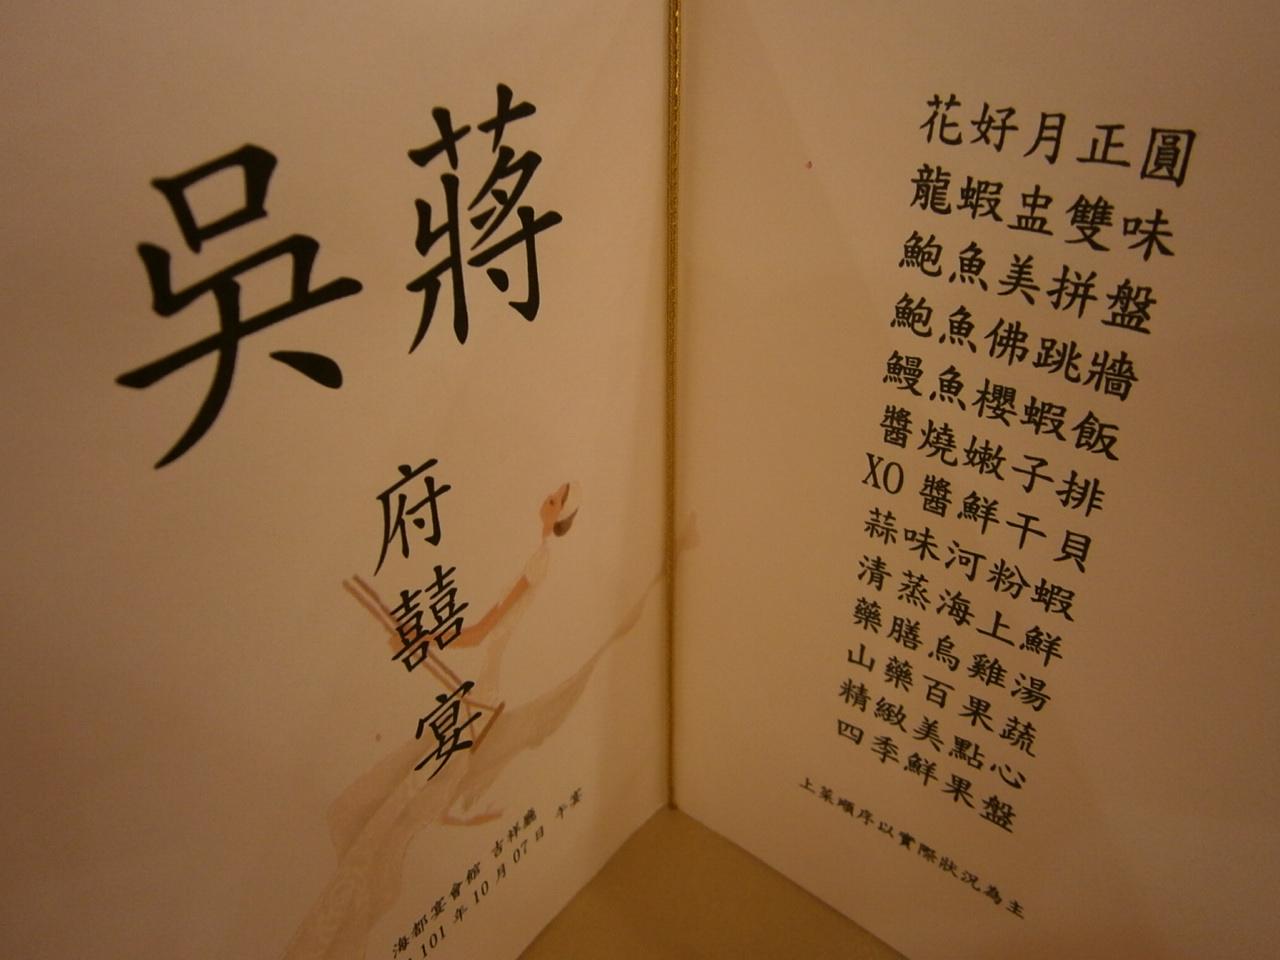 吳 蔣
府
囍
宴
海都宴會館 吉祥廳
101 年 10 月 07 日 午宴
花好月正圓
龍蝦盅雙味
鮑魚美拼盤
鮑魚佛跳牆
鰻魚櫻蝦飯
醬燒嫩子排
XO 醬鮮干貝
蒜味河粉蝦
清蒸海上鮮
藥膳烏雞湯
山藥百果蔬
精緻美點心
四季鮮果盤
上菜順序以實際狀況為主